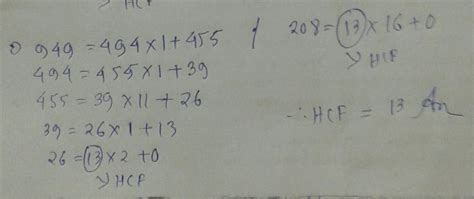 > HCF
① 949 = 494 × 1 + 455
494 = 455 × 1 + 39
455 = 39 × 11 + 26
39 = 26 × 1 + 13
26 = 13 × 2 + 0
> HCF
208 = 13 × 16 + 0
> HCF
∴ HCF = 13 An